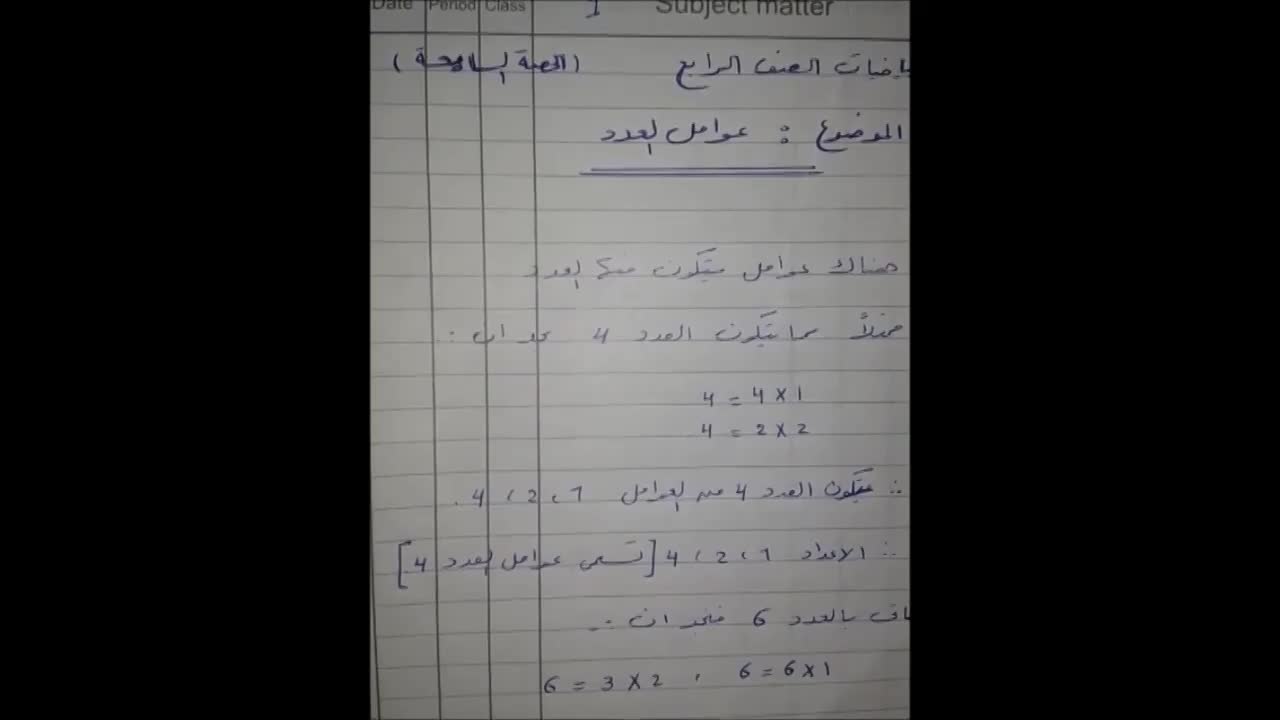 Date Period Class 1 Subject matter
ياضيات الصف الرابع (الحصة السابعة)
الموضوع : عوامل العدد
هناك عوامل يتكون منها العدد
مثلاً مما يتكون العدد 4 نجد ان :
4 = 4 × 1
4 = 2 × 2
∴ يتكون العدد 4 من العوامل 1 ، 2 ، 4 .
∴ الاعداد 1 ، 2 ، 4 [تسمى عوامل العدد 4]
بالعدد 6 فنجد ان :-
6 = 6 × 1 ، 6 = 3 × 2